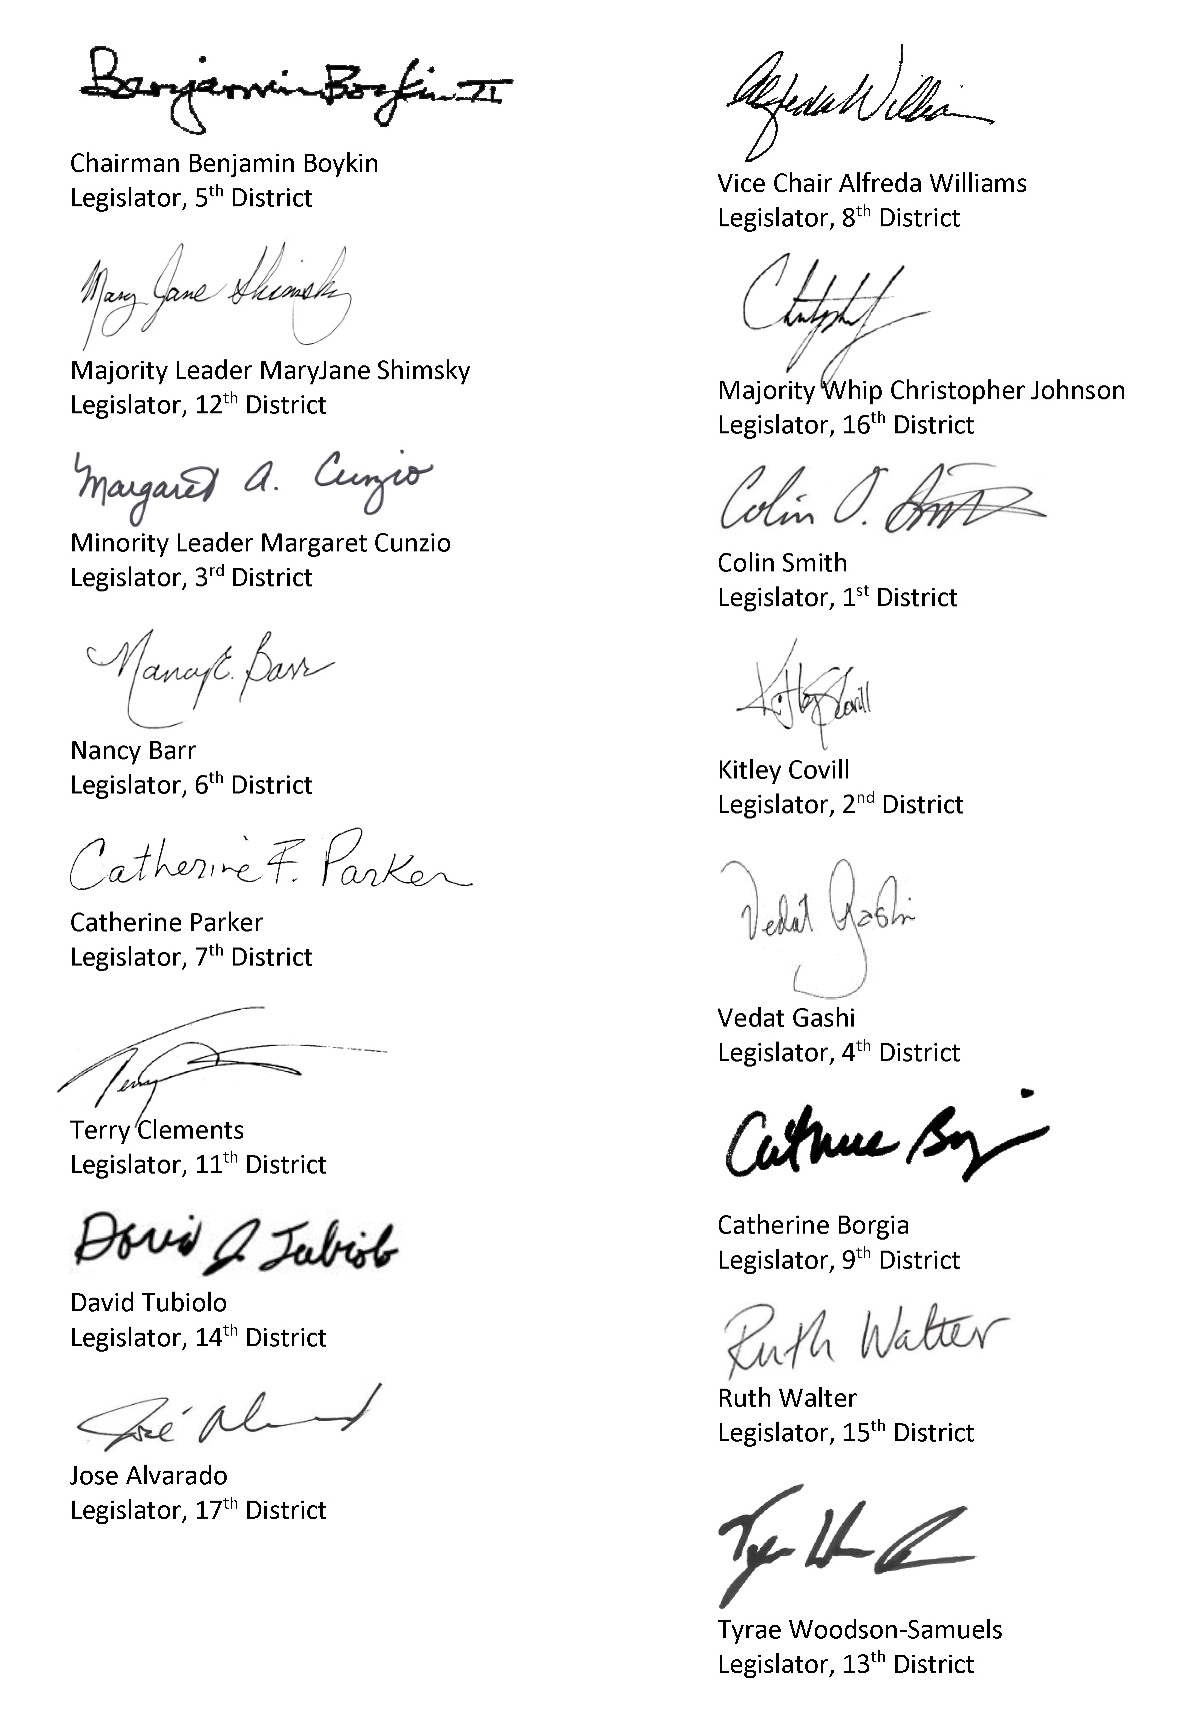 Benjamin Boykin II
Chairman Benjamin Boykin
Legislator, 5th District
Mary Jane Shimsky
Majority Leader MaryJane Shimsky
Legislator, 12th District
Margaret A. Cunzio
Minority Leader Margaret Cunzio
Legislator, 3rd District
Nancy E. Barr
Nancy Barr
Legislator, 6th District
Catherine F. Parker
Catherine Parker
Legislator, 7th District
Terry
Terry Clements
Legislator, 11th District
David J. Tubiolo
David Tubiolo
Legislator, 14th District
José
Jose Alvarado
Legislator, 17th District
Alfreda Williams
Vice Chair Alfreda Williams
Legislator, 8th District
Majority Whip Christopher Johnson
Legislator, 16th District
Colin O. Smith
Colin Smith
Legislator, 1st District
Kitley Covill
Kitley Covill
Legislator, 2nd District
Vedat Gashi
Vedat Gashi
Legislator, 4th District
Catherine Borgia
Legislator, 9th District
Ruth Walter
Ruth Walter
Legislator, 15th District
Tyrae Woodson-Samuels
Legislator, 13th District